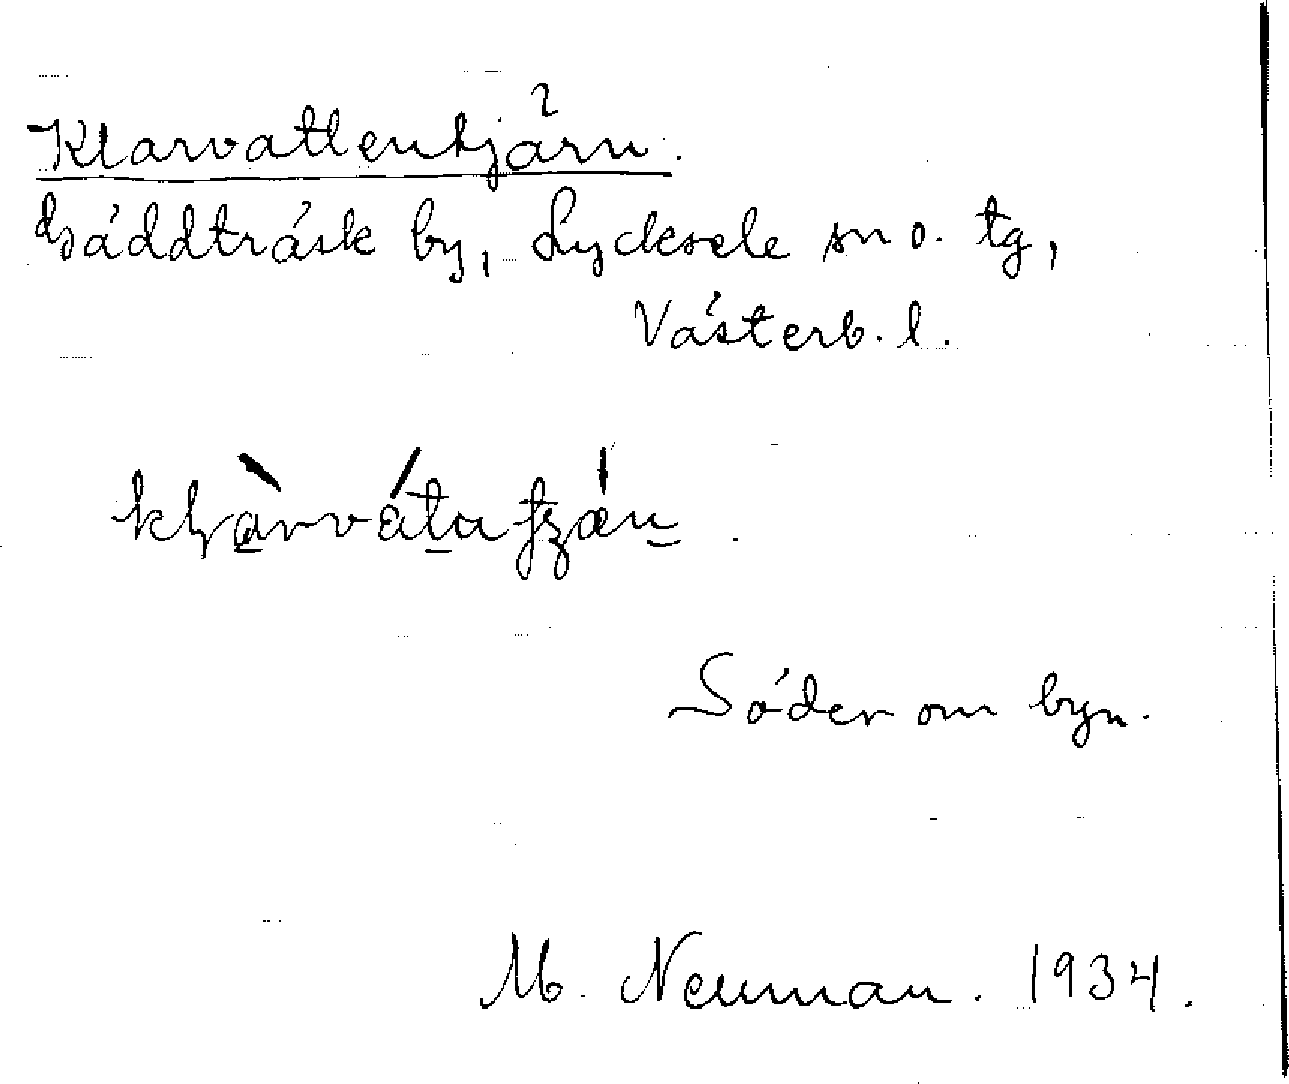 Klarvattentjärn.
Bäddträsk by, Lycksele sn o. tg,
Västerb. l.
Söder om byn.
M. Neuman. 1934.